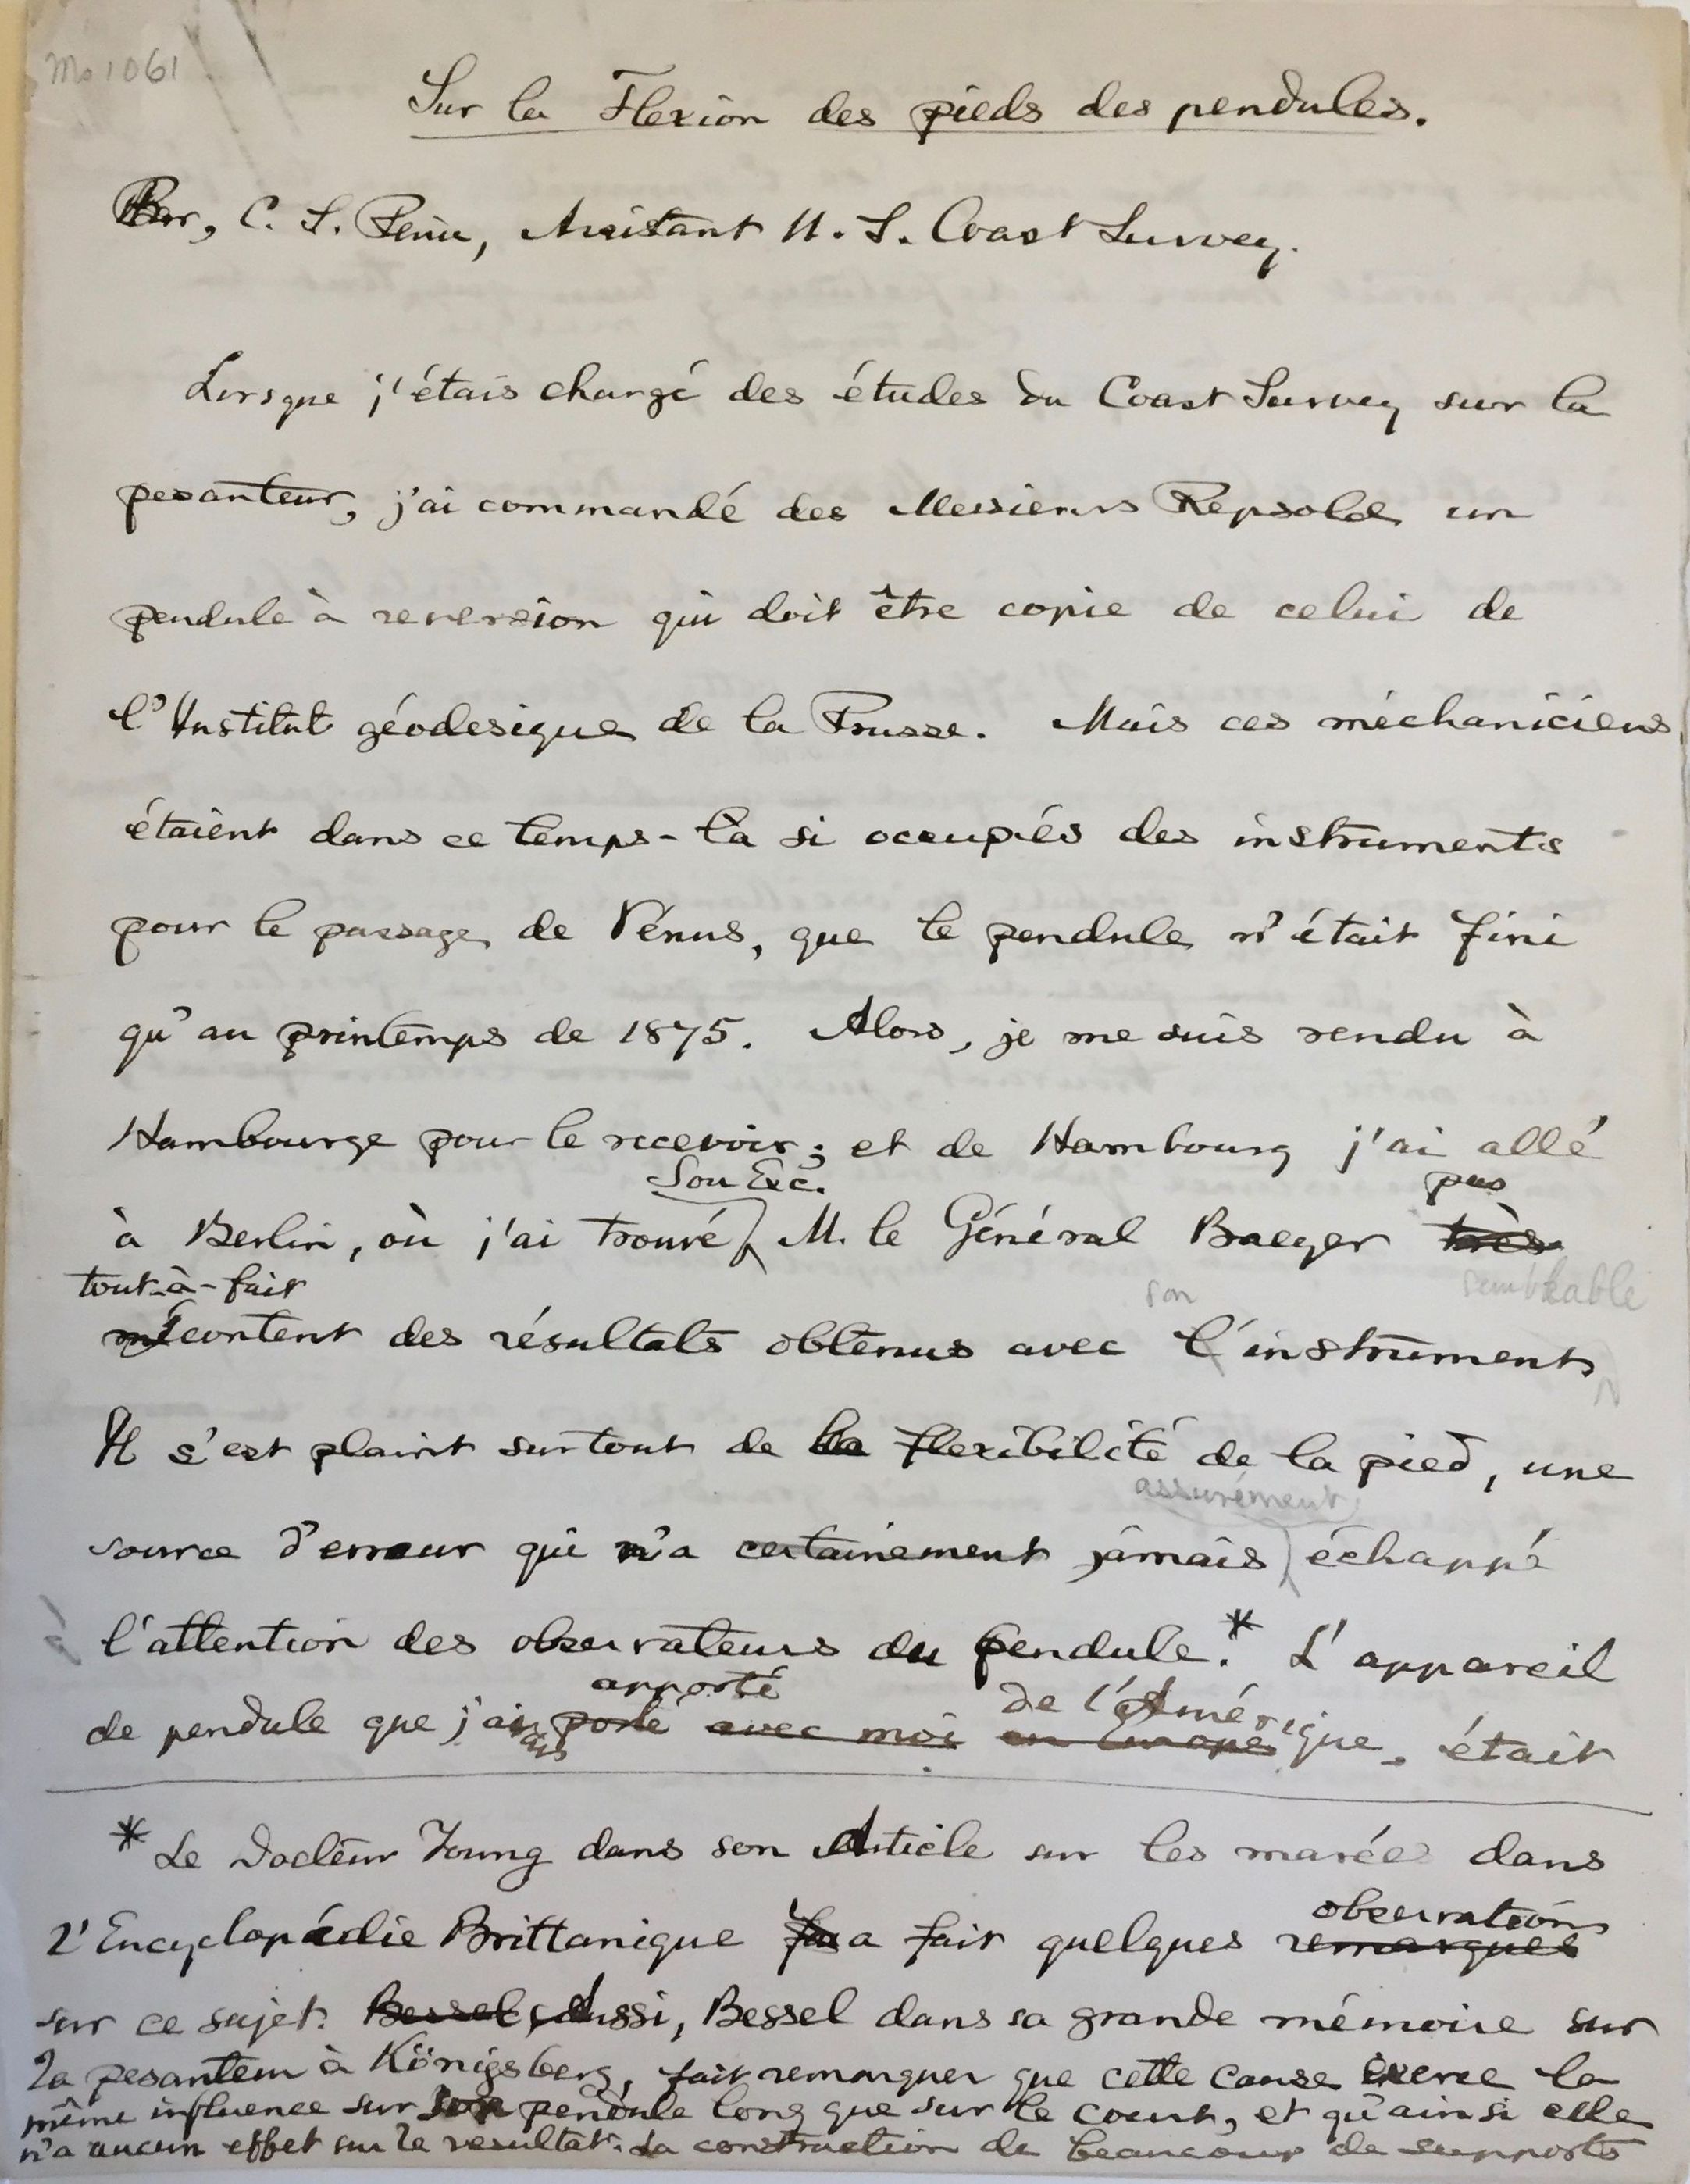 Ms 1061
Sur la Flexion des pieds des pendules.
Par, C. S. Peirce, Assistant U. S. Coast Survey.
Lorsque j'étais chargé des études du Coast Survey sur la
pesanteur, j'ai commandé des Messieurs Repsolds un
pendule à reversion qui doit être copie de celui de
l'Institut géodesique de la Prusse. Mais ces méchaniciens
étaient dans ce temps-là si occupiés des instruments
pour le passage de Vénus, que le pendule n'était fini
qu'au printemps de 1875. Alors, je me suis rendu à
Hambourge pour le recevoir; et de Hambourg j'ai allé
Son Exc. pas
à Berlin, où j'ai trouvé M. le Général Baeyer très
tout-à-fait son semblable
mécontent des résultats obtenus avec l'instrument
Il s'est plaint surtout de la flexibilité de la pied, une
assurément
source d'erreur qui n'a certainement jamais échappé
à l'attention des observateurs du pendule.* L'appareil
apporté de l'Amérique
de pendule que j'ai porté avec moi en Europe, était
* Le Docteur Young dans son Article sur les marées dans
observations
l'Encyclopédie Brittanique a fait quelques remarques
sur ce sujet. Bessel, Aussi, Bessel dans sa grande mémoire sur
la pesanteur à Königsberg, fait remarquer que cette cause exerce la
même influence sur son pendule long que sur le court, et qu'ainsi elle
n'a aucun effet sur le resultat. La construction de beaucoup de supports